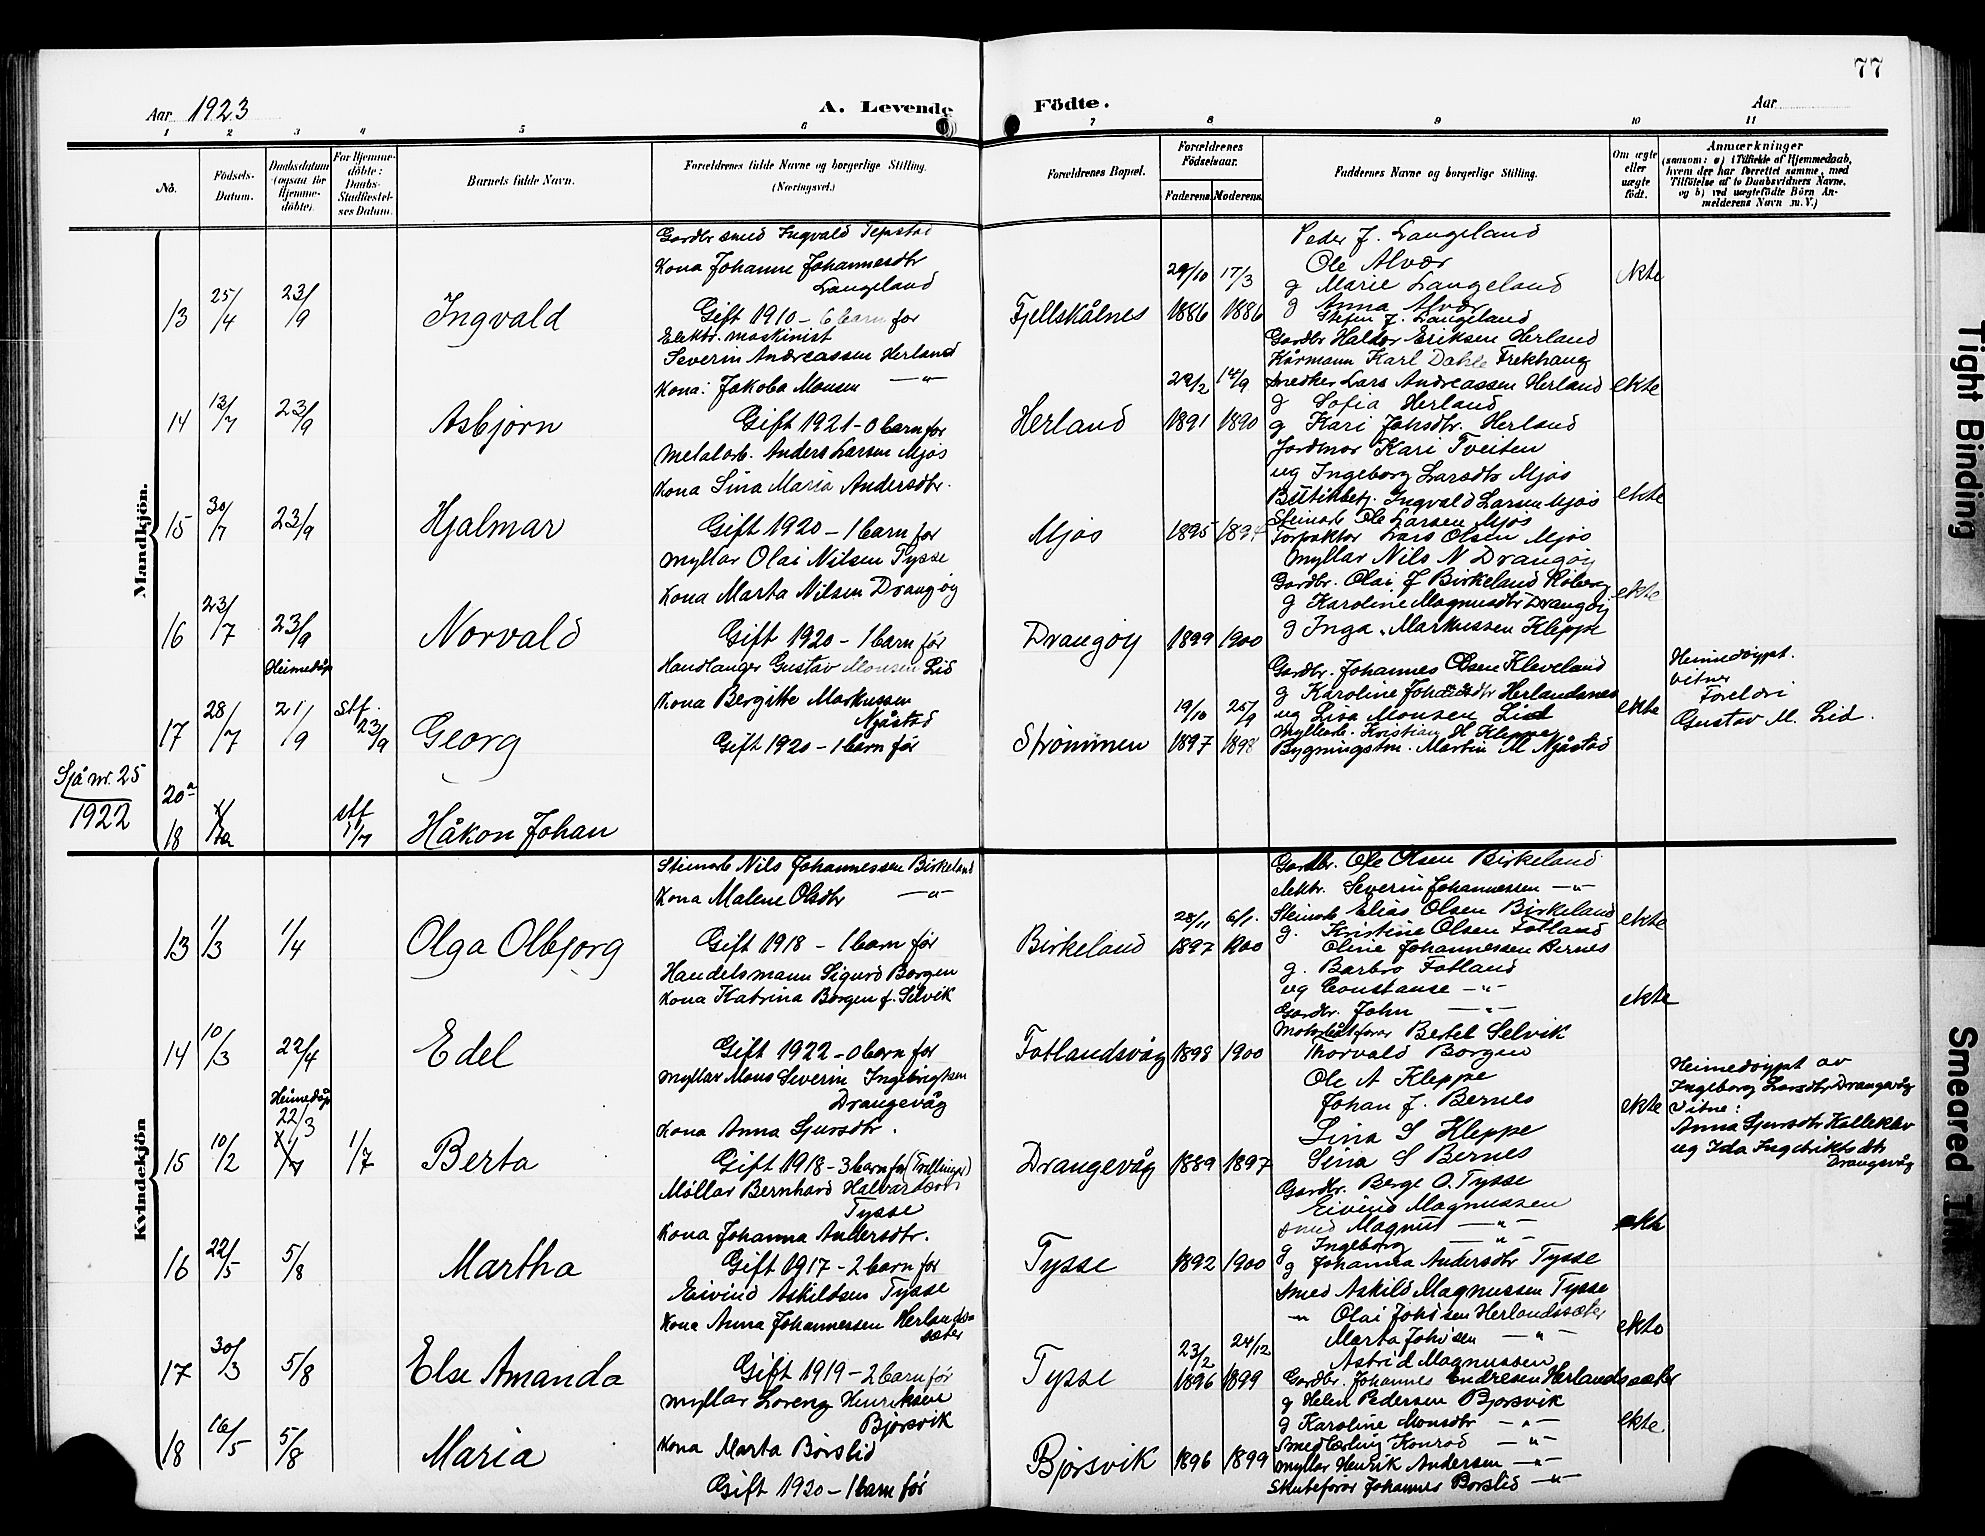 77
Aar 1923
A. Levende Födte.
Aar
1 2 3 4 5 6 7 8 9 10 11
No.
Födsels-Datum.
Daabsdatum (ogsaa for Hjemmedöbte).
For Hjemmedöbte: Daabs-Stadfæstelses Datum.
Barnets fulde Navn.
Forældrenes fulde Navne og borgerlige Stilling. (Næringsvei.)
Forældrenes Bopæl.
Forældrenes Födselsaar.
Faderens. Moderens.
Faddernes Navne og borgerlige Stilling.
Om ægte eller uægte födt.
Anmærkninger
(saasom: a) i Tilfælde af Hjemmedaab, hvem der har forrettet samme, med Tilföielse af to Daabsvidners Navne, og b) ved uægtefödte Börn Anmelderens Navn m. V.)
Mandkjön.
13 25/4 23/9 Ingvald
Gardbr smed Ingvald Tepstad
Kona Johanne Johannesdtr
Langeland
Gift 1910 – 6 barn før
Fjellskålnes 29/10 1886 17/3 1886
Peder J. Langeland
Ole Alvær
g Marie Langeland
g Anna Alvær
Stefen J. Langeland
ekte
14 13/7 23/9 Asbjørn
Elektr. maskinist
Severin Andreassen Herland
Kona: Jakoba Monsen – " –
Gift 1921 – 0 barn før
Herland 22/2 1891 14/9 1890
Gardbr Haldor Eriksen Herland
Kårmann Karl Dahle Frekhaug
Snedker Lars Andreassen Herland
g Sofia Herland
g Kari Johsdtr. Herland
ekte
15 30/7 23/9 Hjalmar
Metalarb. Anders Larsen Mjøs
Kona Lina Maria Andersdtr.
Gift 1920 – 1 barn før
Mjøs 1895
Jordmor Kari Tveiten
ug Ingeborg Larsdtr Mjøs
Butikbetj. Ingvald Larsen Mjøs
Steinarb Ole Larsen Mjøs
Forpaktor Lars Olsen Mjøs
ekte
16 23/7 23/9 Norvald
Myllar Olai Nilsen Tysse
Kona Marta Nilsen Drangøy
Gift 1920 – 1 barn før
Drangøy 1899 1900
Myllar Nils N Drangøy
Gardbr. Olai J Birkeland Røberg
g Karoline Magnusdtr Drangøy
g Inga Markussen Kleppe
ekte
17 28/7 Heimedåp 21/9 stf. 23/9 Georg
Handlanger Gustav Monsen Lid
Kona Bergitte Markussen
Njåstad
Gift 1920 – 1 barn før
Strømmen 19/10 1897 25/9 1898
Gardbr. Johannes Olsen Kleveland
g Karoline Johansdtr Herlandsnes
ug Lisa Monsen Lid
Myllarb. Kristian H. Kleppe
Bygningstm. Martin M Njåstad
ekte
Heimedøypt.
vitner
Foreldri
Gustav M. Lid.
Sjå nr. 25
1922
20a
18 stf 1/7 Håkon Johan
Kvindekjön
13 1/3 1/4 Olga Olbjørg
Steinarb Nils Johannessen Birkeland
Kona Malene Olsdtr – " –
Gift 1918 – 1 barn før
Birkeland 28/11 1897 6/1. 1900
Gardbr. Ole Olsen Birkeland
elektr. Severin Johannessen – " –
Steinarb Elias Olsen Birkeland
g. Kristine Olsen Fotland
Oline Johannessen Bernes
ekte
14 10/3 22/4 Edel
Handelsmann Sigurd Borgen
Kona Katrina Borgen f. Selvik
Gift 1922 – 0 barn før
Fotlandsvåg 1898 1900
g. Barbro Fotland
ug Constanse – " –
Gardbr. John – " –
Motorbåtførar Bertel Selvik
Thorvald Borgen
ekte
15 10/2 Heimedåp 22/3 1/7 Berta
Myllar Mons Severin Ingebrigtsen
Drangevåg
Kona Anna Sjursdtr.
Gift 1918 – 3 barn før (Trillinger)
Drangevåg 1889 1897
Ole A Kleppe
Johan J. Bernes
Lina S Kleppe
Sina S Bernes
ekte
Heimedøypt av
Ingeborg Larsdtr Drangevåg
Vitne:
Anna Sjursdtr Kallekleiv
ug Ida Ingebriktsdtr
Drangevåg
16 22/5 5/8 Martha
Møllar Bernhard Halvardsen
Tysse
Kona Johanna Andersdtr.
Gift 1917 – 2 barn før
Tysse 1892 1900
Gardbr. Berge O. Tysse
Eivind Magnussen
smed Magnus – " –
g Ingeborg – " –
g Johanna Andersdtr Tysse
ekte
17 30/3 5/8 Else Amanda
Eivind Askildsen Tysse
Kona Anna Johannessen Herlandssæter
Gift 1919 – 2 barn før
Tysse 23/2 1896 24/12 1899
Smed Askild Magnussen Tysse
– " Olai Joh'sen Herlandssæter
Marta Joh'sen – " –
Astrid Magnussen
Gardbr. Johannes Endresen Herlandssæter
ekte
18 16/5 5/8 Maria
Myllar Loreng Henriksen
Bjørsvik
Kona Marta Børslid
Gift 1920 – 1 barn før
Bjørsvik 1896 1899
g Helen Pedersen Bjørsvik
g Karoline Monsdtr – " –
Smedlærling Konrad – " –
Myllar Henrik Andersen – " –
Skuteførar Johannes Børslid – " –
ekte
Tight Binding
Smeared